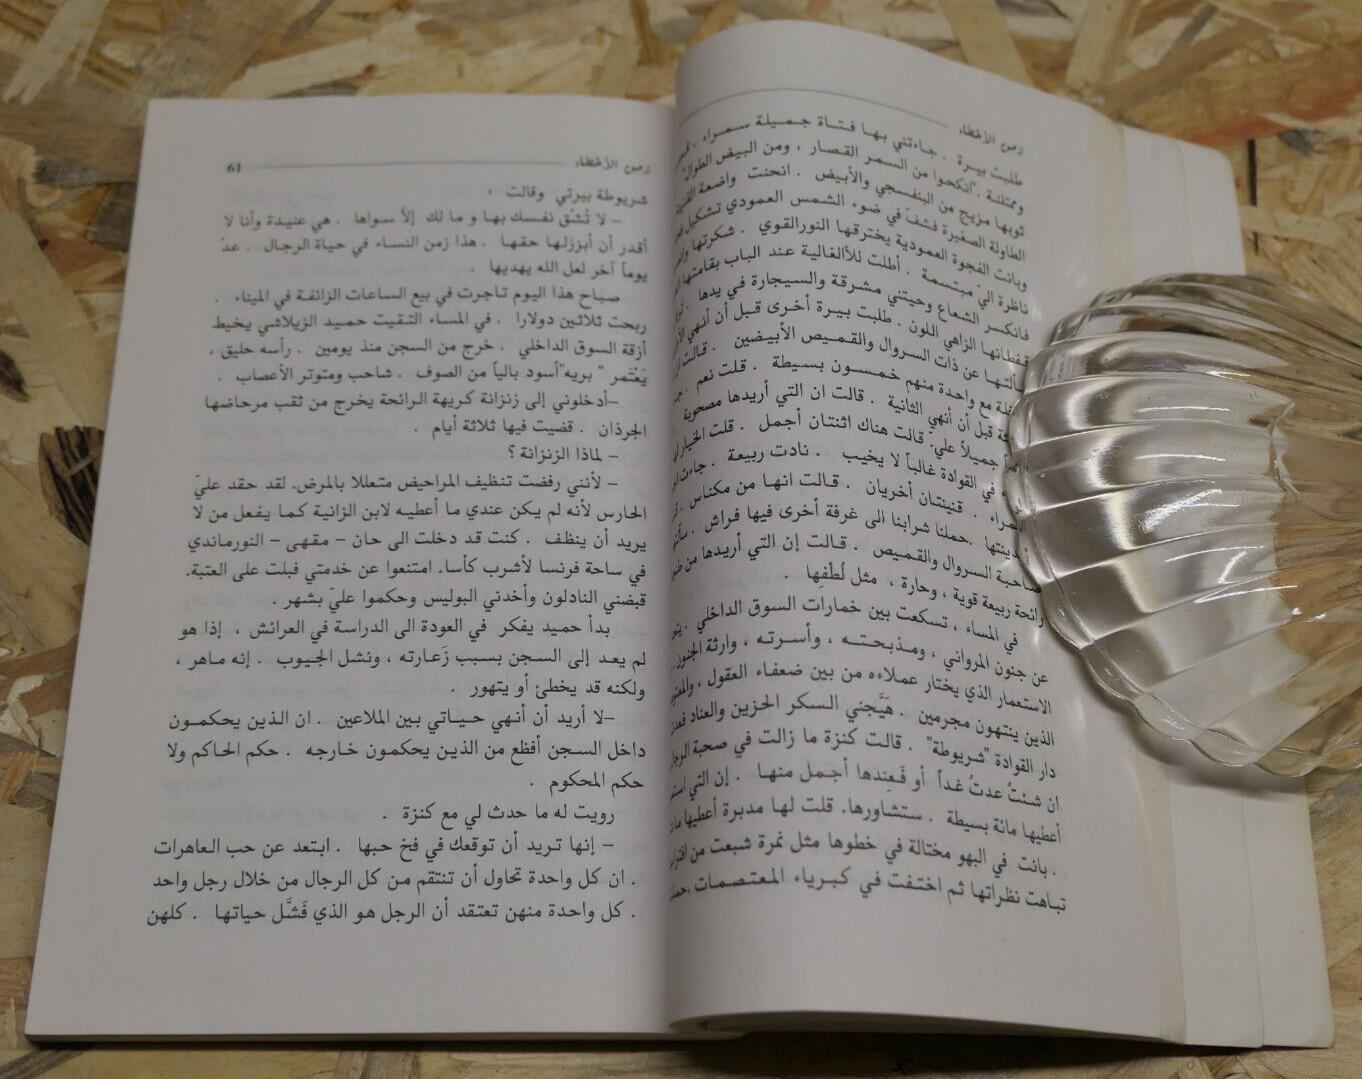 زمن الأخطاء
طلبت بيرة . جاءتني بها فتاة جميلة سمراء ،
وممتلئة . "انكحوا من السمر القصار ، ومن البيض الطوال"
ثوبها مزيج من البنفسجي والأبيض . انحنت واضعة القنينة
الطاولة الصغيرة فشفّ في ضوء الشمس العمودي تشكيل
وبانت الفجوة العمودية يخترقها النور القوي . شكرتها
ناظرة اليّ مبتسمة . أطلت للاّالغالية عند الباب بقامتها
فانكسر الشعاع وحيتني مشرقة والسيجارة في يدها .
قفطانها الزاهي اللون . طلبت بيرة أخرى قبل أن أنهي
سألتها عن ذات السروال والقميص الأبيضين . قالت
مع واحدة منهم خمسون بسيطة . قلت نعم .
قبل أن أنهي الثانية . قالت ان التي أريدها مصحوبة
جميلاً عليّ. قالت هناك اثنتان أجمل . قلت الخيار
في القوادة غالباً لا يخيب . نادت ربيعة . جاءت
. قنينتان أخريان . قالت انها من مكناس .
. حملنا شرابنا الى غرفة أخرى فيها فراش .
صاحبة السروال والقميص . قالت إن التي أريدها من
رائحة ربيعة قوية ، وحارة ، مثل لُطْفِها .
في المساء ، تسكعت بين خمارات السوق الداخلي .
عن جنون المرواني ، ومذبحتـه ، وأسرته ، وارثة الجنون
الاستعمار الذي يختار عملاءه من بين ضعفاء العقول ،
الذين ينتهون مجرمين . هَيَّجني السكر الحزين والعناد
دار القوادة "شريوطة" . قالت كنزة ما زالت في صحبة
ان شئتُ عدتُ غداً أو فَعِندها أجمل منها . إن التي
أعطيها مائة بسيطة . ستشاورها. قلت لها مدبرة أعطيها
. بانت في البهو مختالة في خطوها مثل نمرة شبعت من
تباهت نظراتها ثم اختفت في كبرياء المعتصمات .
زمن الأخطاء 61
شريوطة بيرتي وقالت :
– لا تُشْق نفسك بها و ما لك إلاّ سواها . هي عنيدة وأنا لا
أقدر أن أبززلها حقها . هذا زمن النساء في حياة الرجال . عدْ
يوماً آخر لعل الله يهديها .
صباح هذا اليوم تاجرت في بيع الساعات الزائفة في الميناء .
ربحت ثلاثين دولارا . في المساء التقيت حميد الزيلاشي يخيط
أزقة السوق الداخلي . خرج من السجن منذ يومين . رأسه حليق ،
يَعْتمر " بريه"أسود بالياً من الصوف . شاحب ومتوتر الأعصاب .
–أدخلوني إلى زنزانة كريهة الرائحة يخرج من ثقب مرحاضها
الجرذان . قضيت فيها ثلاثة أيام .
– لماذا الزنزانة ؟
– لأنني رفضت تنظيف المراحيض متعللا بالمرض. لقد حقد عليّ
الحارس لأنه لم يكن عندي ما أعطيه لابن الزانية كما يفعل من لا
يريد أن ينظف . كنت قد دخلت الى حان – مقهى – النورماندي
في ساحة فرنسا لأشرب كأسا. امتنعوا عن خدمتي فبلت على العتبة.
قبضني النادلون وأخدني البوليس وحكموا عليّ بشهر .
بدأ حميد يفكر في العودة الى الدراسة في العرائش ، إذا هو
لم يعد إلى السجن بسبب زَعارته ، ونشل الجيوب . إنه ماهر ،
ولكنه قد يخطئ أو يتهور .
–لا أريد أن أنهي حياتي بين الملاعين . ان الذين يحكمون
داخل السجن أفظع من الذين يحكمون خارجه . حكم الحاكم ولا
حكم المحكوم .
رويت له ما حدث لي مع كنزة .
– إنها تريد أن توقعك في فخ حبها . ابتعد عن حب العاهرات
. ان كل واحدة تحاول أن تنتقم من كل الرجال من خلال رجل واحد
. كل واحدة منهن تعتقد أن الرجل هو الذي فَشَّل حياتها . كلهن